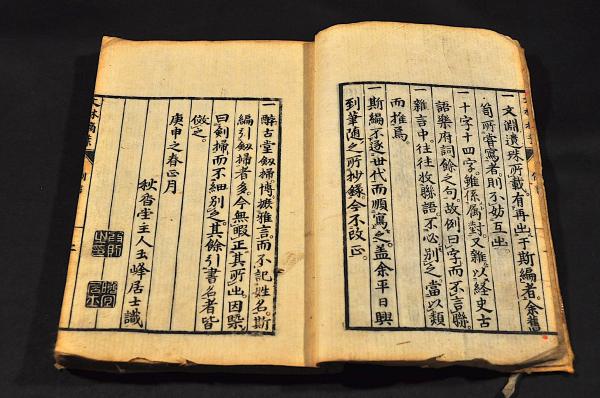 一文淵遺珠所載有再出于斯編者余舊
苟所嘗寫者則不妨互出
一十字十四字雖係属對又雜以経史古
語樂府詞餘之句故例曰字而不言聯
雜言中往往收聯語不必別之當以類
而推焉
一斯編不逐世代而順寫之蓋余平日興
到筆随之所抄錄今不改正
一醉古堂劔掃博摭雅言而不記姓名斯
編引劔掃者多今無暇正其所出因槩
曰劍掃而不細別之其餘引書名者皆
倣之
庚申之春正月
秋香堂主人玉峰居士識